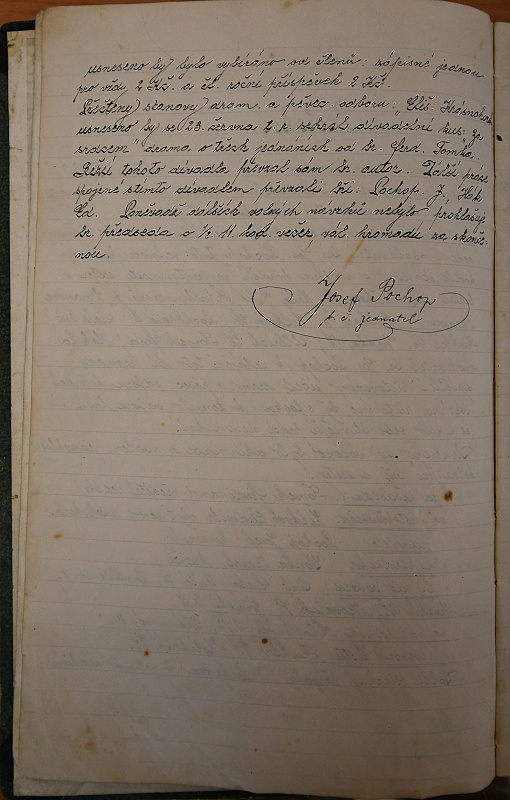 usneseno by bylo vybíráno od členů: zápisné jednou
pro vždy 2 Kč. a čt. roční příspěvek 2 Kč.
Přečteny stanovy dram. a pěvec. odboru: „Eliš. Krásnohorská
usneseno by se 23. června t. r. sehrál divadelní kus „Za
srdcem" drama o třech jednáních od br. Ferd. Tomka.
Režii tohoto divadla převzal sám br. autor. Další práce
spojené stímto divadlem převzali bři: Pochop. J, Hák
Ed. Poněvadž dalších volných návrhů nebylo prohlašuje
br. předseda o ½ 11. hod. večer, val. hromadu za skonče-
nou.
Josef Pochop
t. č. jednatel